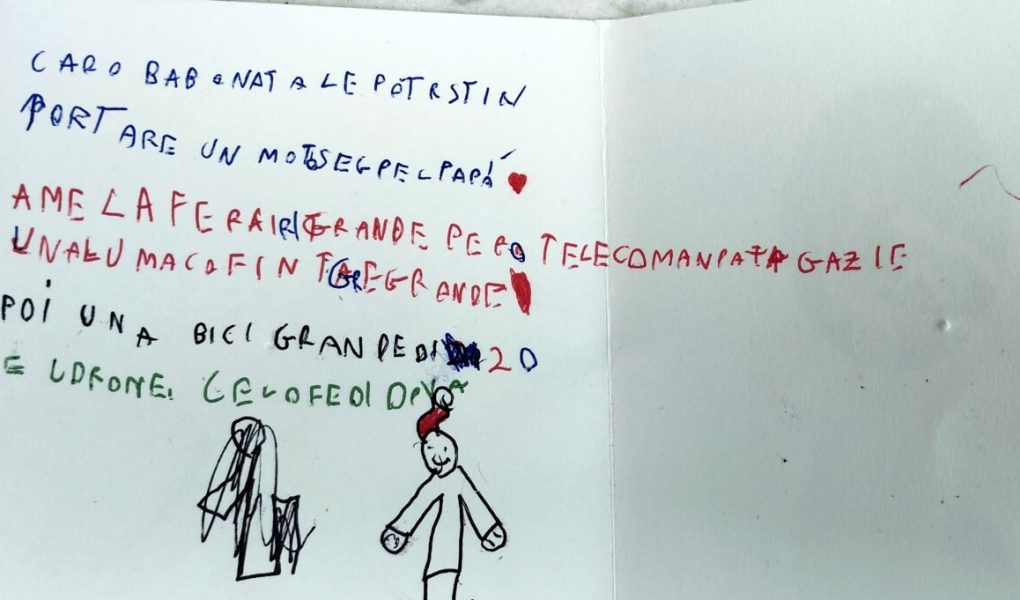 CARO BABONATALE POTRSTIN
PORTARE UN MOTOSEG PEL PAPÁ
AME LA FERAIRI GRANDE PERO TELECOMANDATA GAZIE
UNALUMACOFINTA GREGRANDE
POI UNA BICI GRANDE DI 20
E LDRONE.